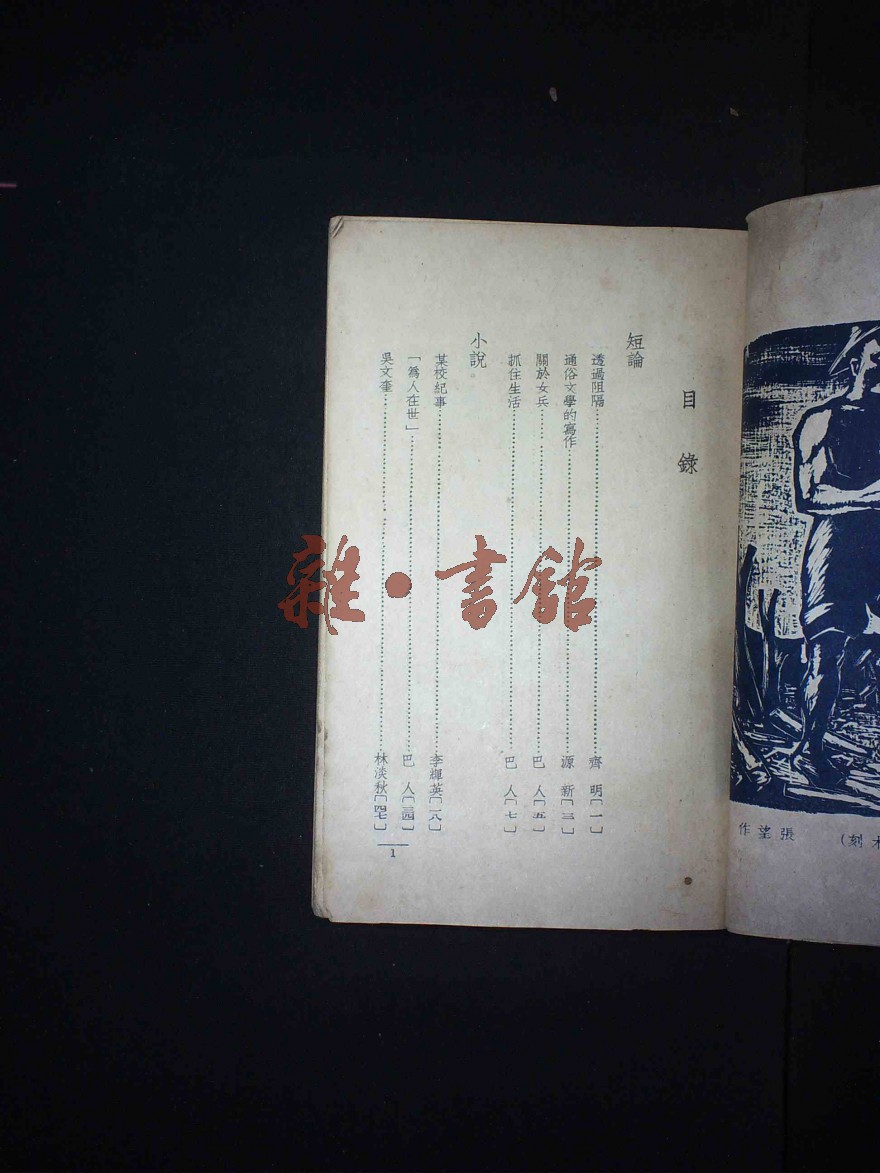 目錄
短論
透過阻隔……齊明〔一〕
通俗文學的寫作……源新〔三〕
關於女兵……巴人〔五〕
抓住生活……巴人〔七〕
小說
某校紀事……李輝英〔一八〕
「為人在世」……巴人〔三四〕
吳文奎……林淡秋〔四七〕
1
張望作
刻)
雜·書館